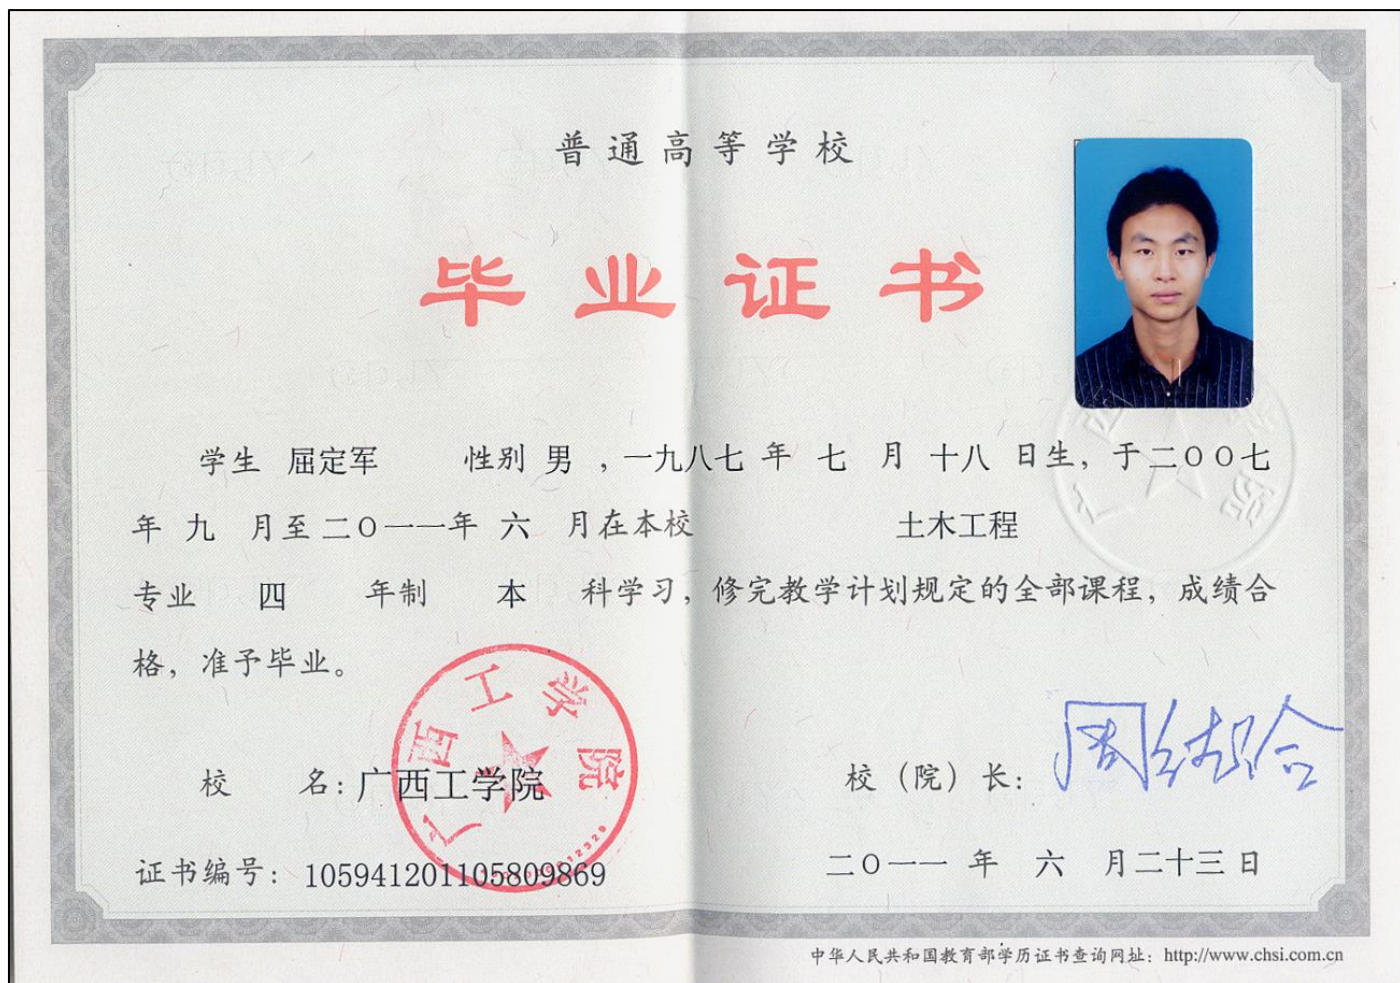 普通高等学校
毕业证书
学生 屈定军 性别 男 ，一九八七 年 七 月 十八 日生，于二〇〇七
年 九 月至 二〇一一年 六 月在本校 土木工程
专业 四 年制 本 科学习，修完教学计划规定的全部课程，成绩合
格，准予毕业。
广西工学院
校 名：广西工学院
校（院）长：
证书编号：105941201105809869
二〇一一 年 六 月二十三日
中华人民共和国教育部学历证书查询网址：http://www.chsi.com.cn